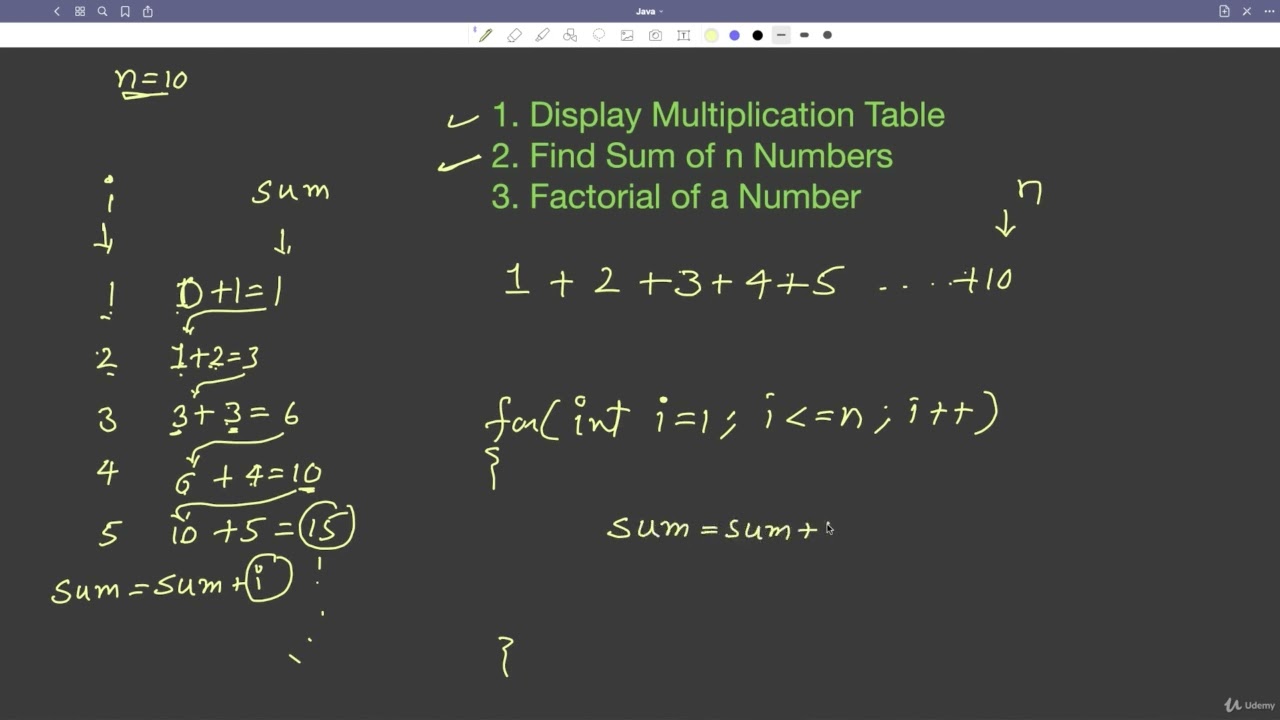 Java
n=10
1. Display Multiplication Table
2. Find Sum of n Numbers
3. Factorial of a Number
i sum
n
1 0+1=1
1 + 2 +3+4+5 ....+10
2 1+2=3
3 3+3=6
for(int i=1; i<=n; i++)
{
4 6+4=10
5 10+5=15
sum=sum+
sum=sum+i
}
Udemy